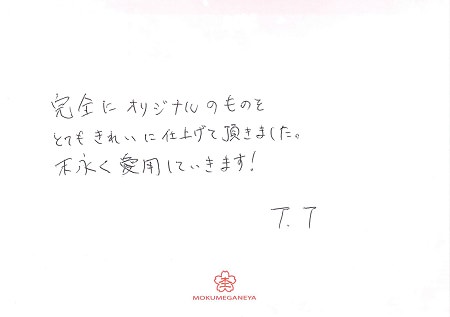 完全に オリジナルのものを
とても きれいに仕上げて頂きました。
末永く愛用していきます!
T. T
杢
MOKUMEGANEYA